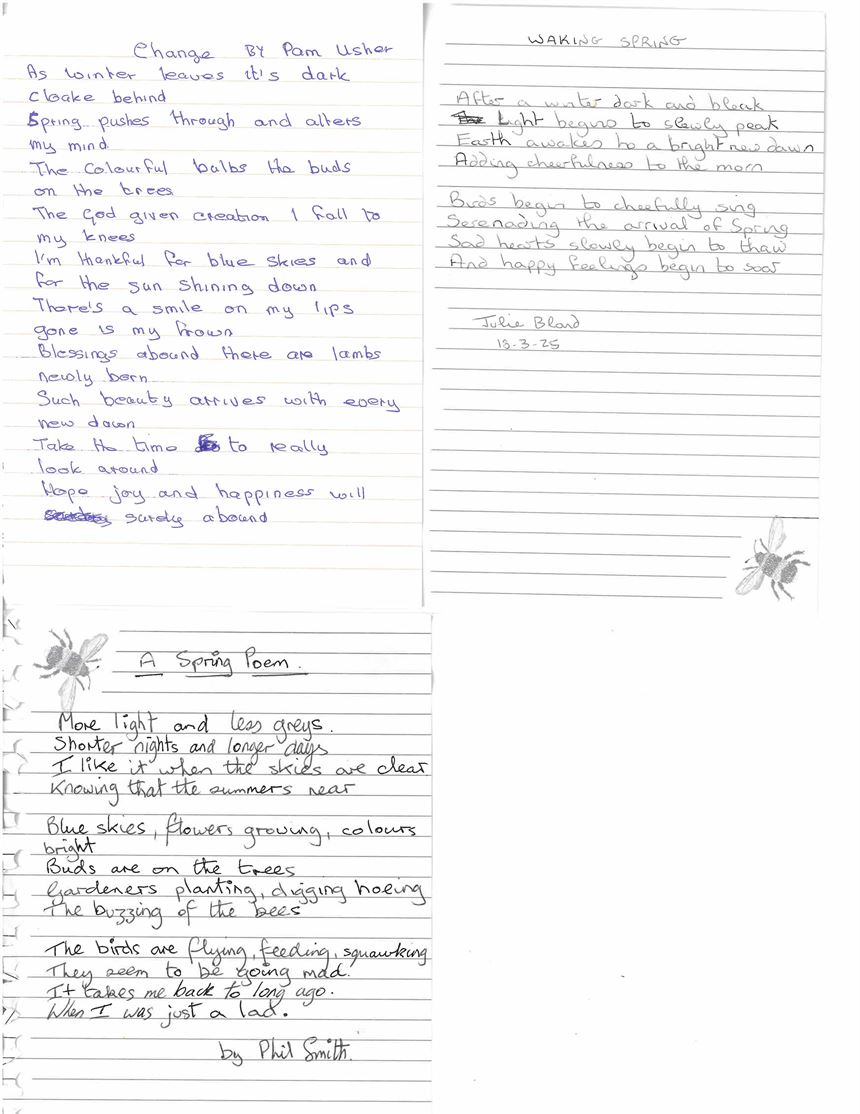 Change BY Pam Usher
As winter leaves it's dark
cloake behind
Spring pushes through and alters
my mind
The Colourful bulbs the buds
on the trees
The God given creation I fall to
my knees
I'm thankful for blue skies and
for the sun shining down
There's a smile on my lips
gone is my frown
Blessings abound there are lambs
newly born
Such beauty arrives with every
new dawn
Take the time to really
look around
Hope joy and happiness will
surely abound
WAKING SPRING
After a winter dark and bleak
Light begins to slowly peak
Earth awakes to a bright new dawn
Adding cheerfulness to the morn
Birds begin to cheefully sing
Serenading the arrival of Spring
Sad hearts slowly begin to thaw
And happy feelings begin to soar
Julie Bland
13-3-25
A Spring Poem.
More light and less greys.
Shorter nights and longer days
I like it when the skies are clear
Knowing that the summers near
Blue skies, flowers growing, colours
bright
Buds are on the trees
Gardeners planting, digging hoeing
The buzzing of the bees
The birds are flying, feeding, squawking
They seem to be going mad.
It takes me back to long ago.
When I was just a lad.
by Phil Smith.